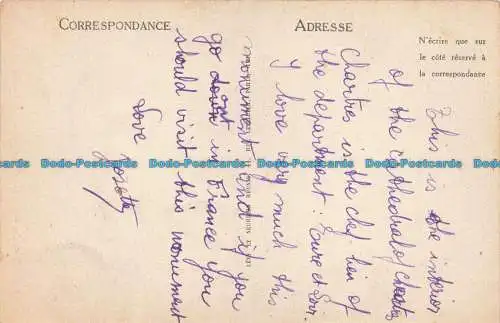 CORRESPONDANCE
ADRESSE
N'écrire que sur
le côté réservé à
la correspondante
This is the interior
of the cathedral of Chartres
Chartres is the chef lieu of
the department : Eure et Loir.
I love very much this
monument and if you
go down in France you
should visit this monument
Love
Dodo-Postcards Dodo-Postcards Dodo-Postcards Dodo-Postcards